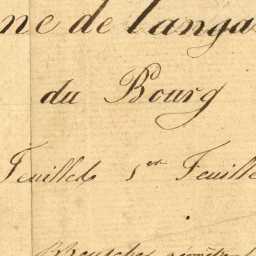 ne de Langa
du Bourg
Feuilleds 1er Feuille